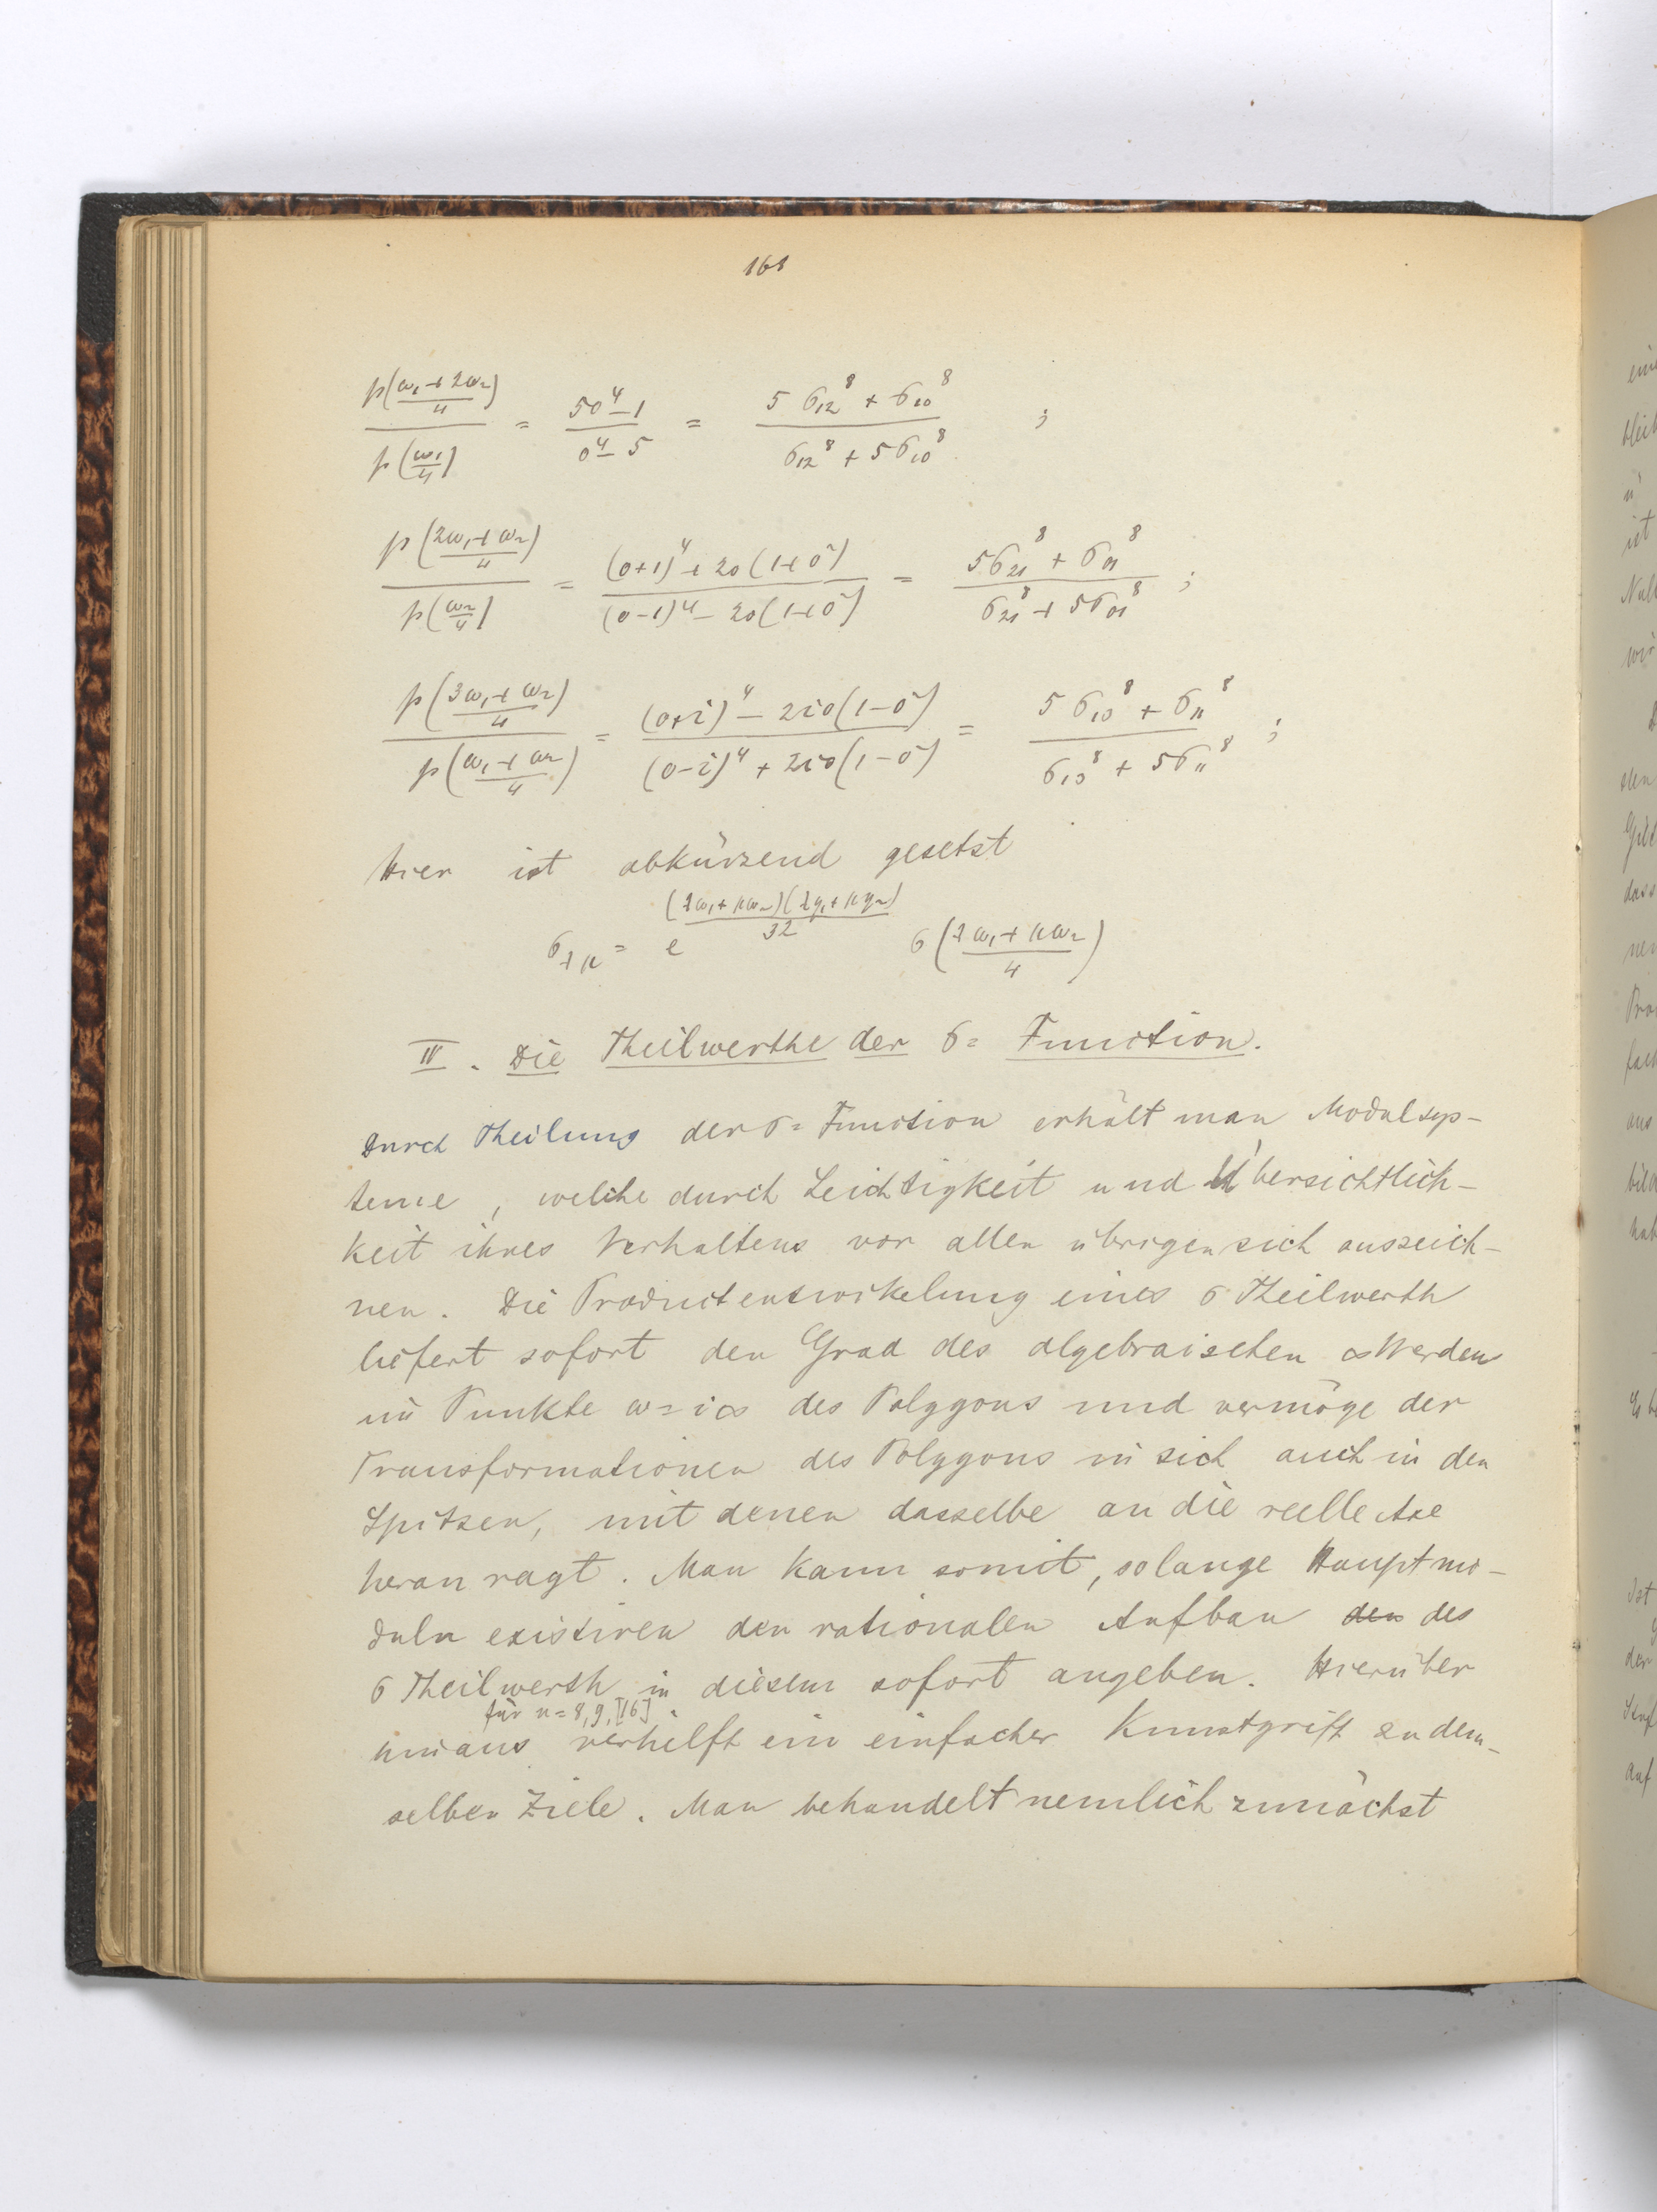 161
p((ω₁+2ω₂)/4) / p(ω₁/4) = (5o⁴−1)/(o⁴−5) = (5σ₁₂⁸ + σ₁₀⁸)/(σ₁₂⁸ + 5σ₁₀⁸) ;
p((2ω₁+ω₂)/4) / p(ω₂/4) = ((o+1)⁴+2o(1+o²))/((o−1)⁴−2o(1+o²)) = (5σ₂₁⁸ + σ₀₁⁸)/(σ₂₁⁸ + 5σ₀₁⁸) ;
p((3ω₁+ω₂)/4) / p((ω₁+ω₂)/4) = ((o+i)⁴−2io(1−o²))/((o−i)⁴+2io(1−o²)) = (5σ₁₃⁸ + σ₁₁⁸)/(σ₁₃⁸ + 5σ₁₁⁸) ;
Hier ist abkürzend gesetzt
σ_λμ = e^((λω₁+μω₂)(λη₁+μη₂)/32) σ((λω₁+μω₂)/4)
IV. Die Theilwerthe der σ= Function.
Durch Theilung der σ= Function erhält man Modulsys-
teme, welche durch Leichtigkeit und Übersichtlich-
keit ihres Verhaltens vor allen übrigen sich auszeich-
nen. Die Productentwikelung eines σ Theilwerth
liefert sofort den Grad des algebraischen ∞ Werdens
im Punkte ω=i∞ des Polygons und vermöge der
Transformationen des Polygons in sich auch in den
Spitzen, mit denen dasselbe an die reelle Axe
heran ragt. Man kann somit, solange Hauptmo-
duln existiren den rationalen Aufbau den des
σ Theilwerth in diesem sofort angeben. Hierüber
für n=8,9,[16]
hinaus verhilft ein einfacher Kunstgriff zu dem-
selben Ziele. Man behandelt nemlich zunächst